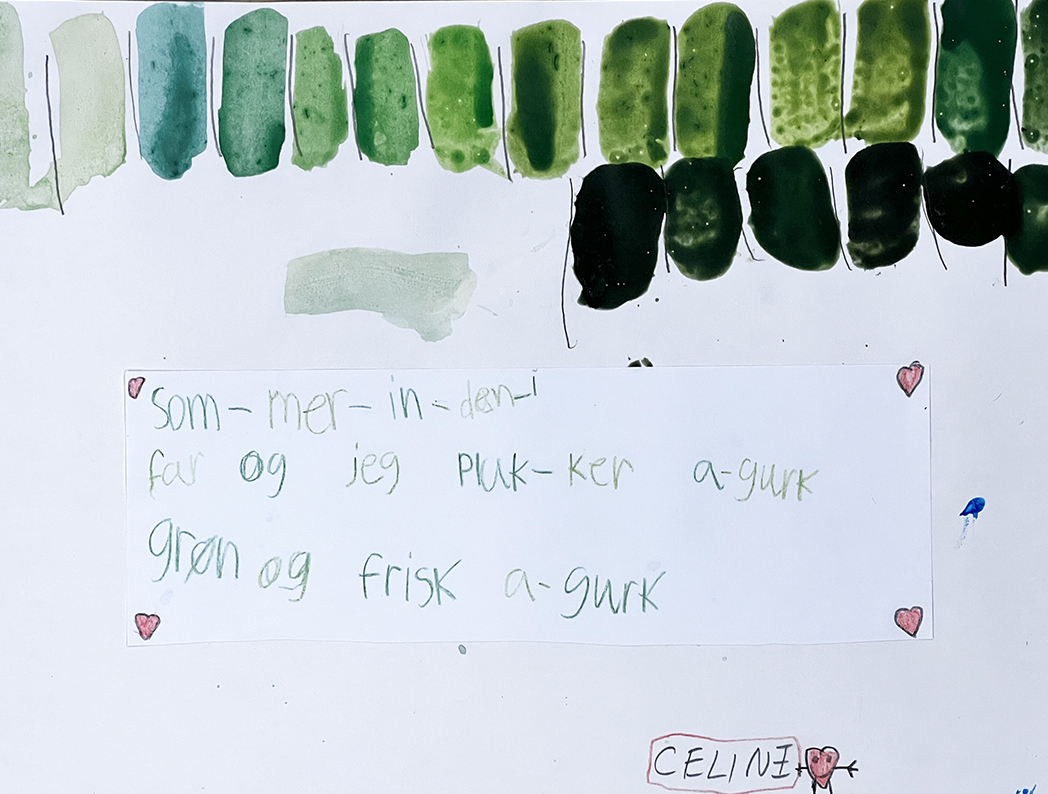 som-mer-in-den-i
far og jeg Pluk-ker a-gurk
grøn og frisk a-gurk
CELINE